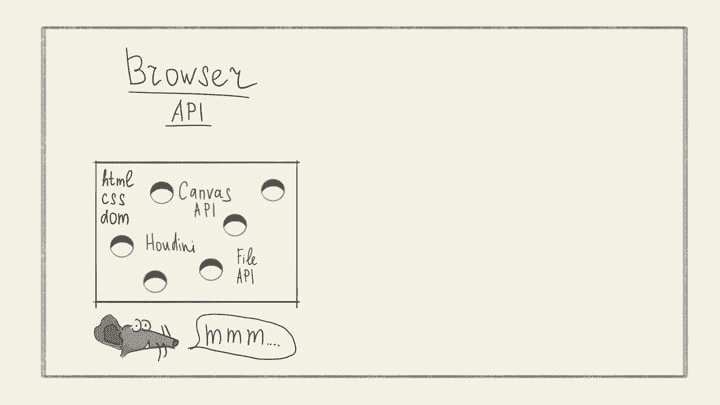 Browser
API
html
css
dom
Canvas
API
Houdini
File
API
mmm....